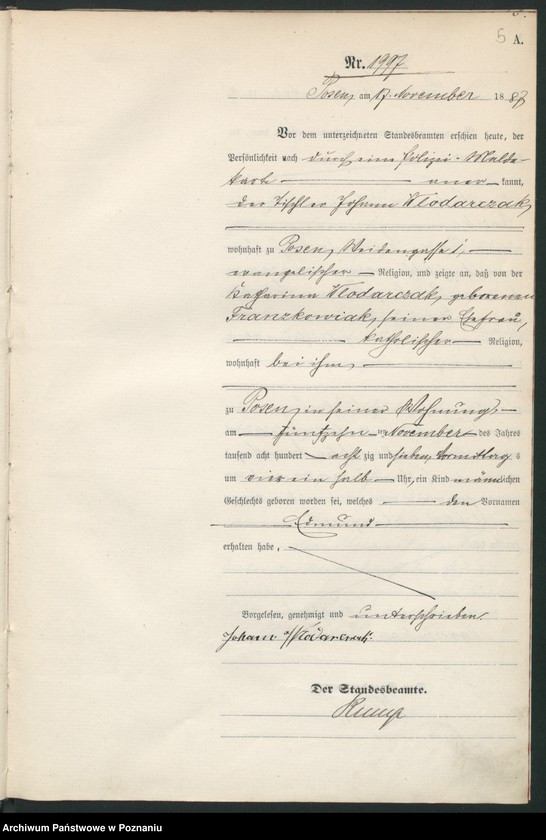 5 A.
Nr. 1997
Posen, am 17. November 1887
Vor dem unterzeichneten Standesbeamten erschien heute, der
Persönlichkeit nach durch eine Polizei-Melde-
karte anerkannt,
der Tischler Johann Wlodarczak,
wohnhaft zu Posen, Weidengasse 1,
evangelischer Religion, und zeigte an, daß von der
Katharina Wlodarczak, geborenen
Franzkowiak, seiner Ehefrau,
katholischer Religion,
wohnhaft bei ihm
zu Posen, in seiner Wohnung,
am fünfzehnten November des Jahres
tausend acht hundert acht zig und sieben, Vormittags
um vier ein halb Uhr, ein Kind männlichen
Geschlechts geboren worden sei, welches den Vornamen
Edmund
erhalten habe.
Vorgelesen, genehmigt und unterschrieben.
Johann Wlodarczak
Der Standesbeamte.
Archiwum Państwowe w Poznaniu